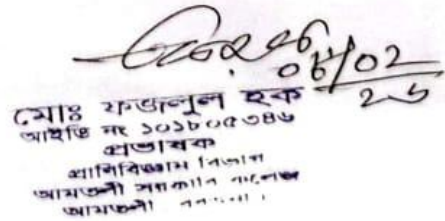 ০৮/০২
২৬
মোঃ ফজলুল হক
আইডি নং ১০১৮০৫৩৪৬
প্রভাষক
প্রাণিবিজ্ঞান বিভাগ
আমতলী সরকারি কলেজ
আমতলী